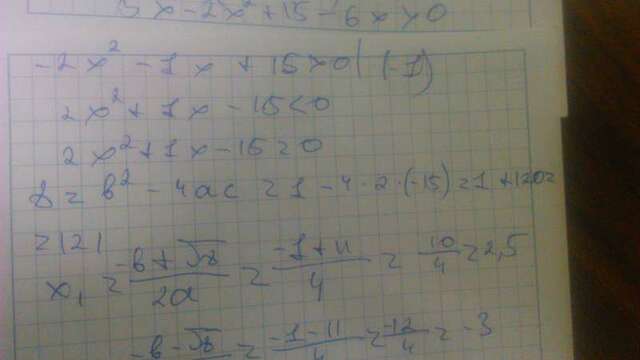 5x-2x²+15-6x>0
-2x²-1x+15>0|(-1)
2x²+1x-15<0
2x²+1x-15=0
D=b²-4ac=1-4·2·(-15)=1+120=
=121
x₁=(-b+√D)/2a=(-1+11)/4=10/4=2,5
(-b-√D)/=(-1-11)/4=-12/4=-3